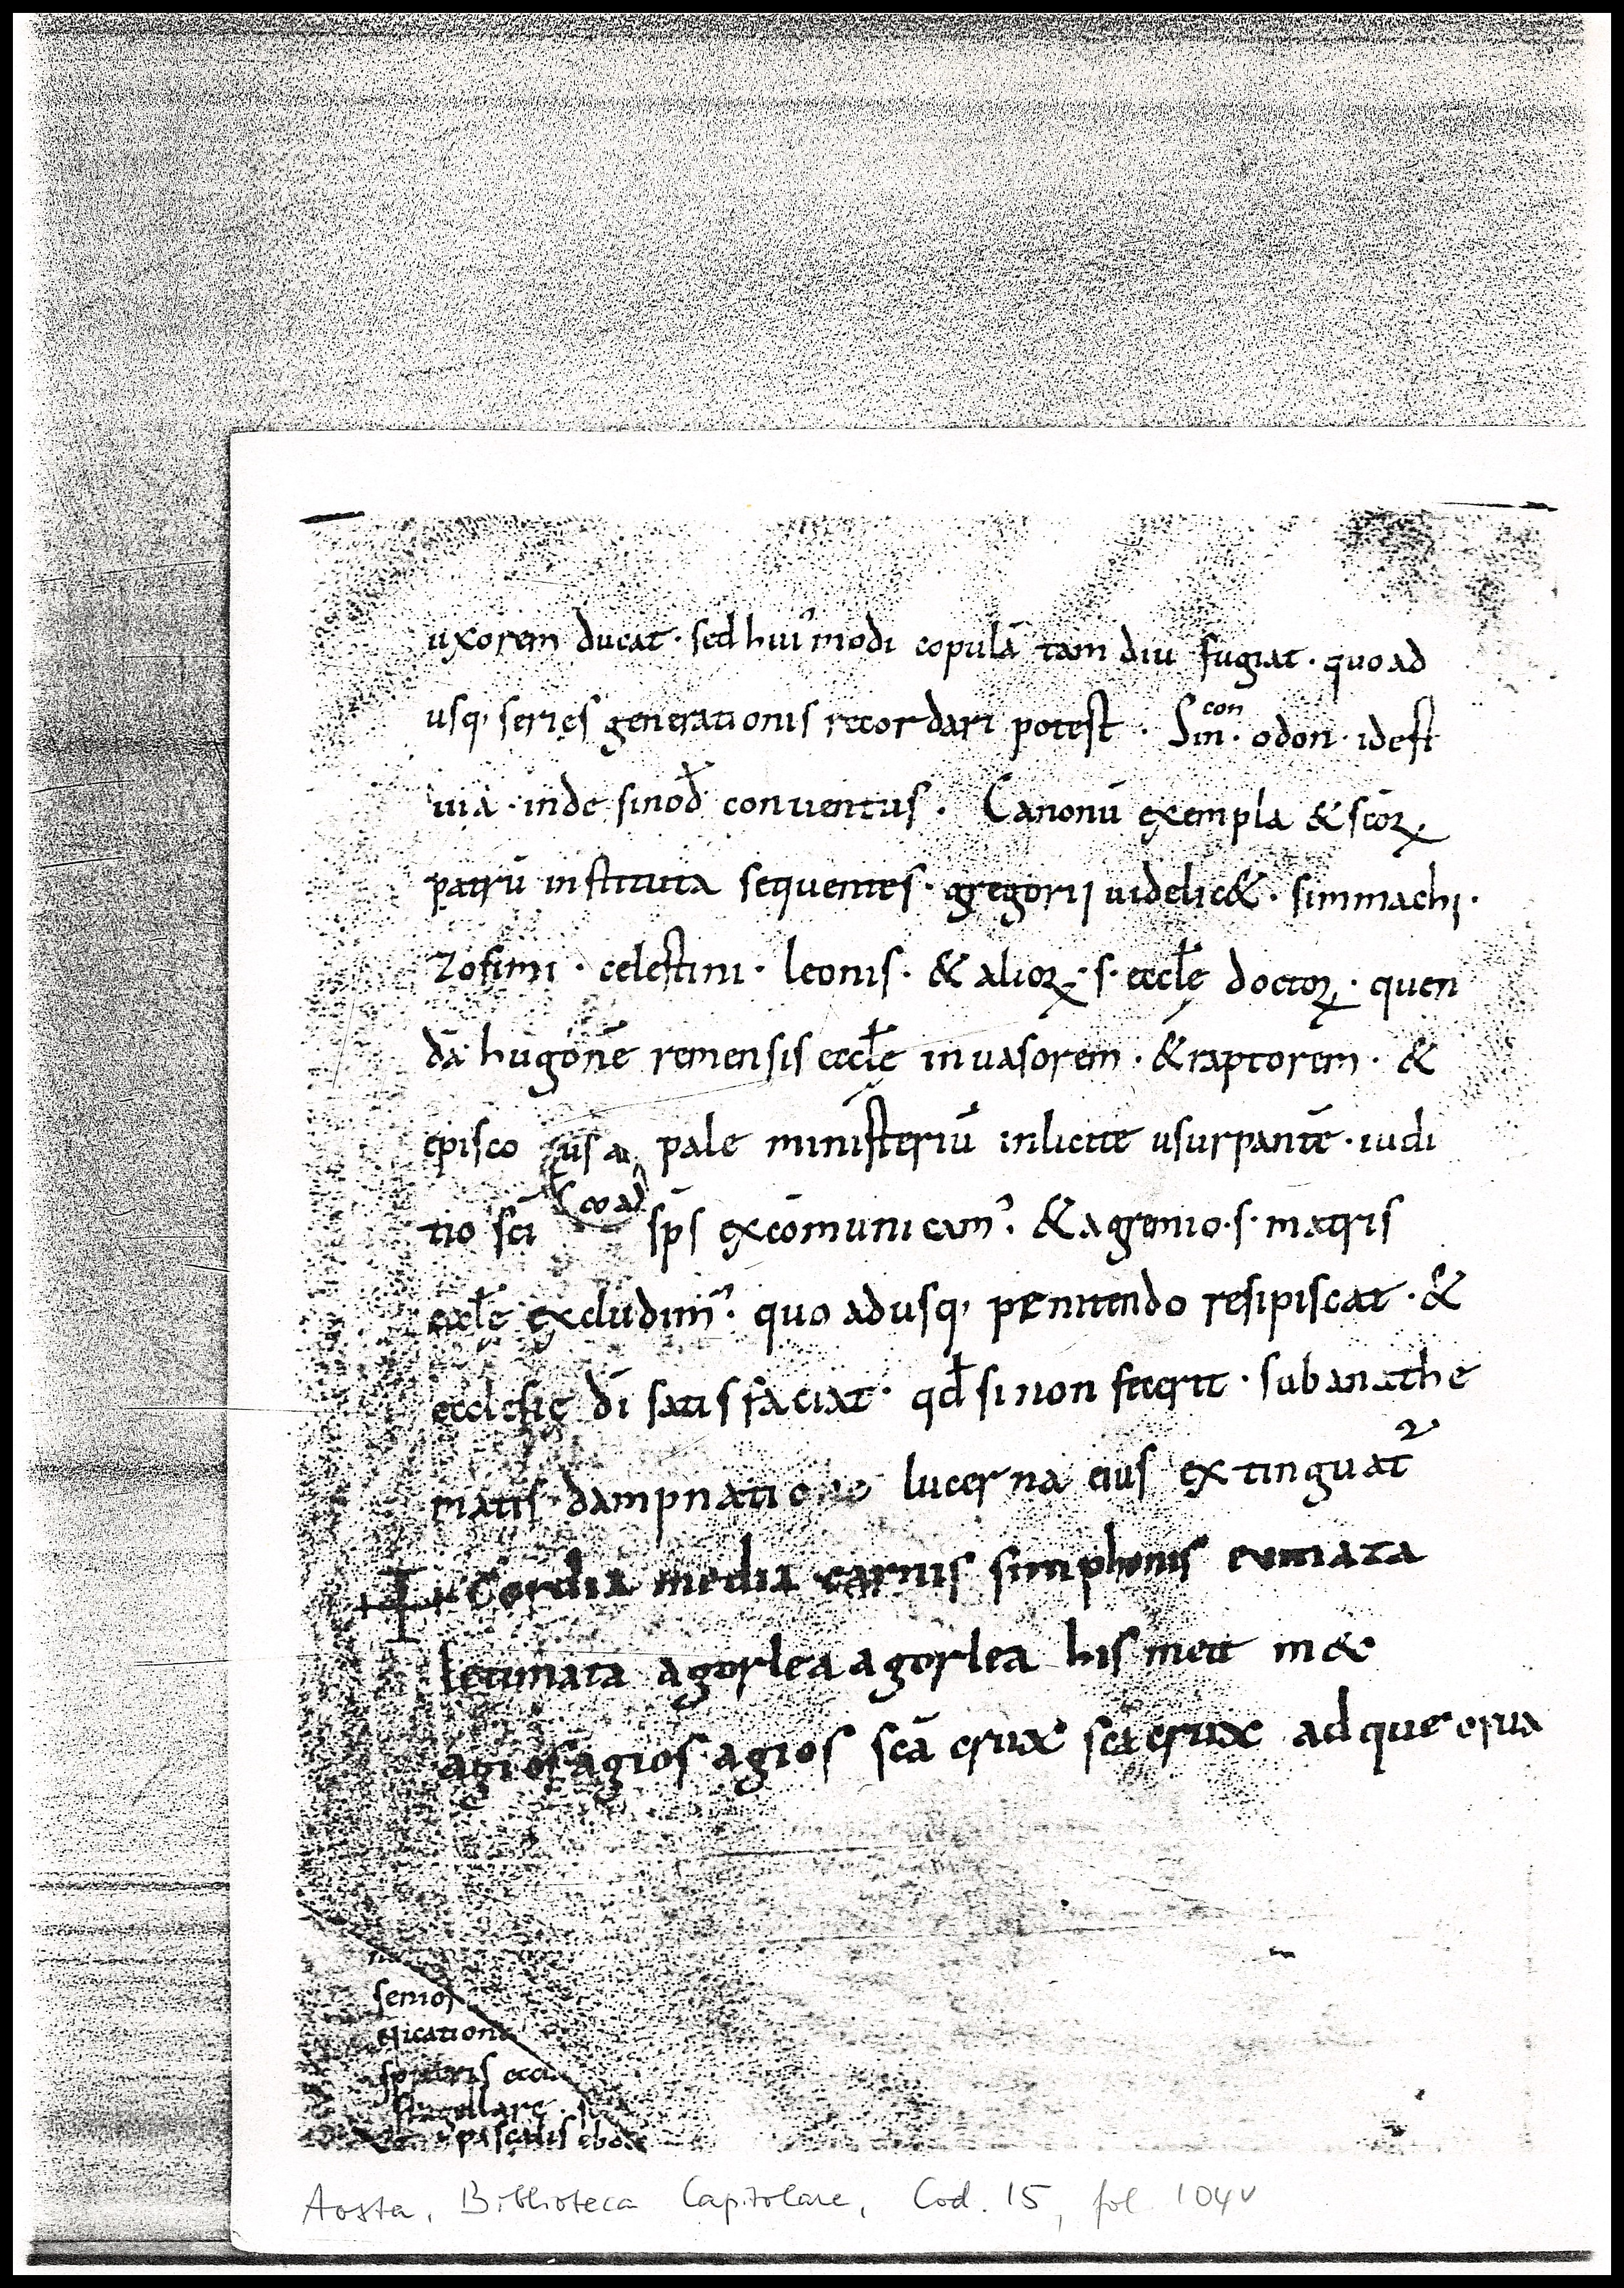 uxorem ducat · sed hui᾽modi copulā tam diu fugiat · quo ad
usq; series generationis recordari potest · Sin · odon · idest
con
uia · inde sinod̄ conuentus · Canonū exempla & scōꝝ
patrū instituta sequentes · gregorij uidelic& · simmachi ·
Zosimi · celestini · leonis · & alioꝝ · s · eccłę doctoꝝ · quen
dā hugonē remensis eccłę inuasorem · & raptorem · &
episco pale ministeriū inlicite usurpantē · iudi
tio sc̄i sp̄s excōmunicam᾽ · & a gremio · s · matris
eccłę excludim᾽ · quo adusq; penitendo resipiscat · &
ecclesię dī satisfaciat · qđ si non fecerit · sub anathe
matis dampnatione lucerna eius extinguat᾽
Cordia media carnis simphonis eumata
letimata agorlea agorlea his mett m&
agios agios agios scā crux scā crux adque crua
senior
spiteris
flagellare
pascalis
Aosta, Biblioteca Capitolare, Cod. 15, fol. 104v